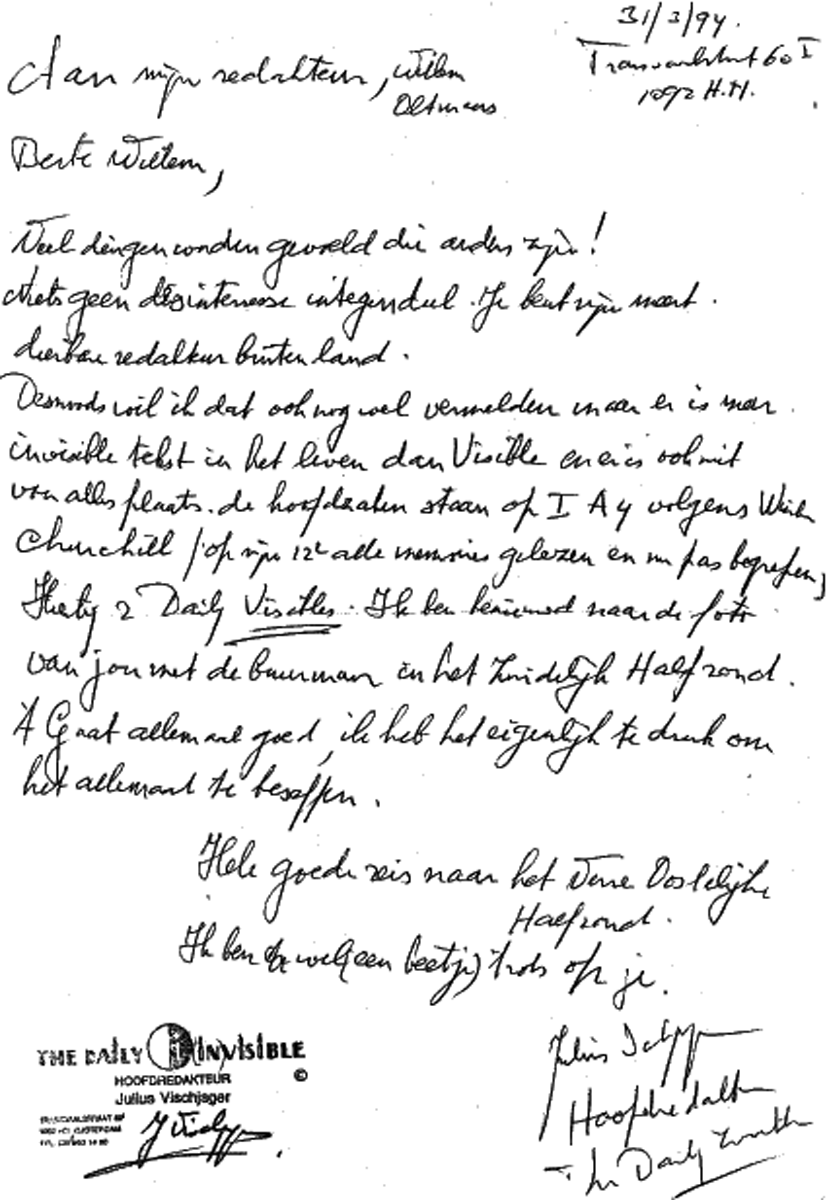 31/3/94.
Transvaalstraat 60 I
1092 H.M.
Aan mijn redakteur, Willem
Oltmans
Beste Willem,
Veel dingen worden gevoeld die anders zijn!
Niets geen desinteresse integendeel. Je bent mijn meest
dierbare redakteur buitenland.
Desnoods wil ik dat ook nog wel vermelden maar er is meer
invisible tekst in het leven dan Visible en er is ook niet
van alles plaats. de hoofdzaken staan op I A4 volgens
Churchill /op mijn 12e alle memoires gelezen en nu pas begrepen,
Hierbij 2 Daily Visibles. Ik ben benieuwd naar de foto
van jou met de buurman in het Zuidelijk Halfrond.
Gaat allemaal goed, ik heb het eigenlijk te druk om
het allemaal te beseffen.
Hele goede reis naar het Verre Oostelijke
Halfrond.
Ik ben wel (een beetje) trots op je.
THE DAILY (IN)VISIBLE
HOOFDREDAKTEUR ©
Julius Vischjager
Julius
Hoofdredakteur
Daily